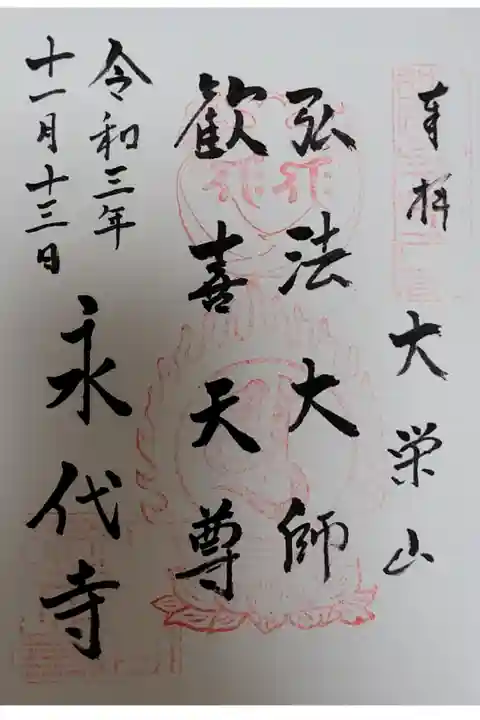 奉拝 大栄山
弘法大師
歓喜天尊
令和三年
十一月十三日
永代寺